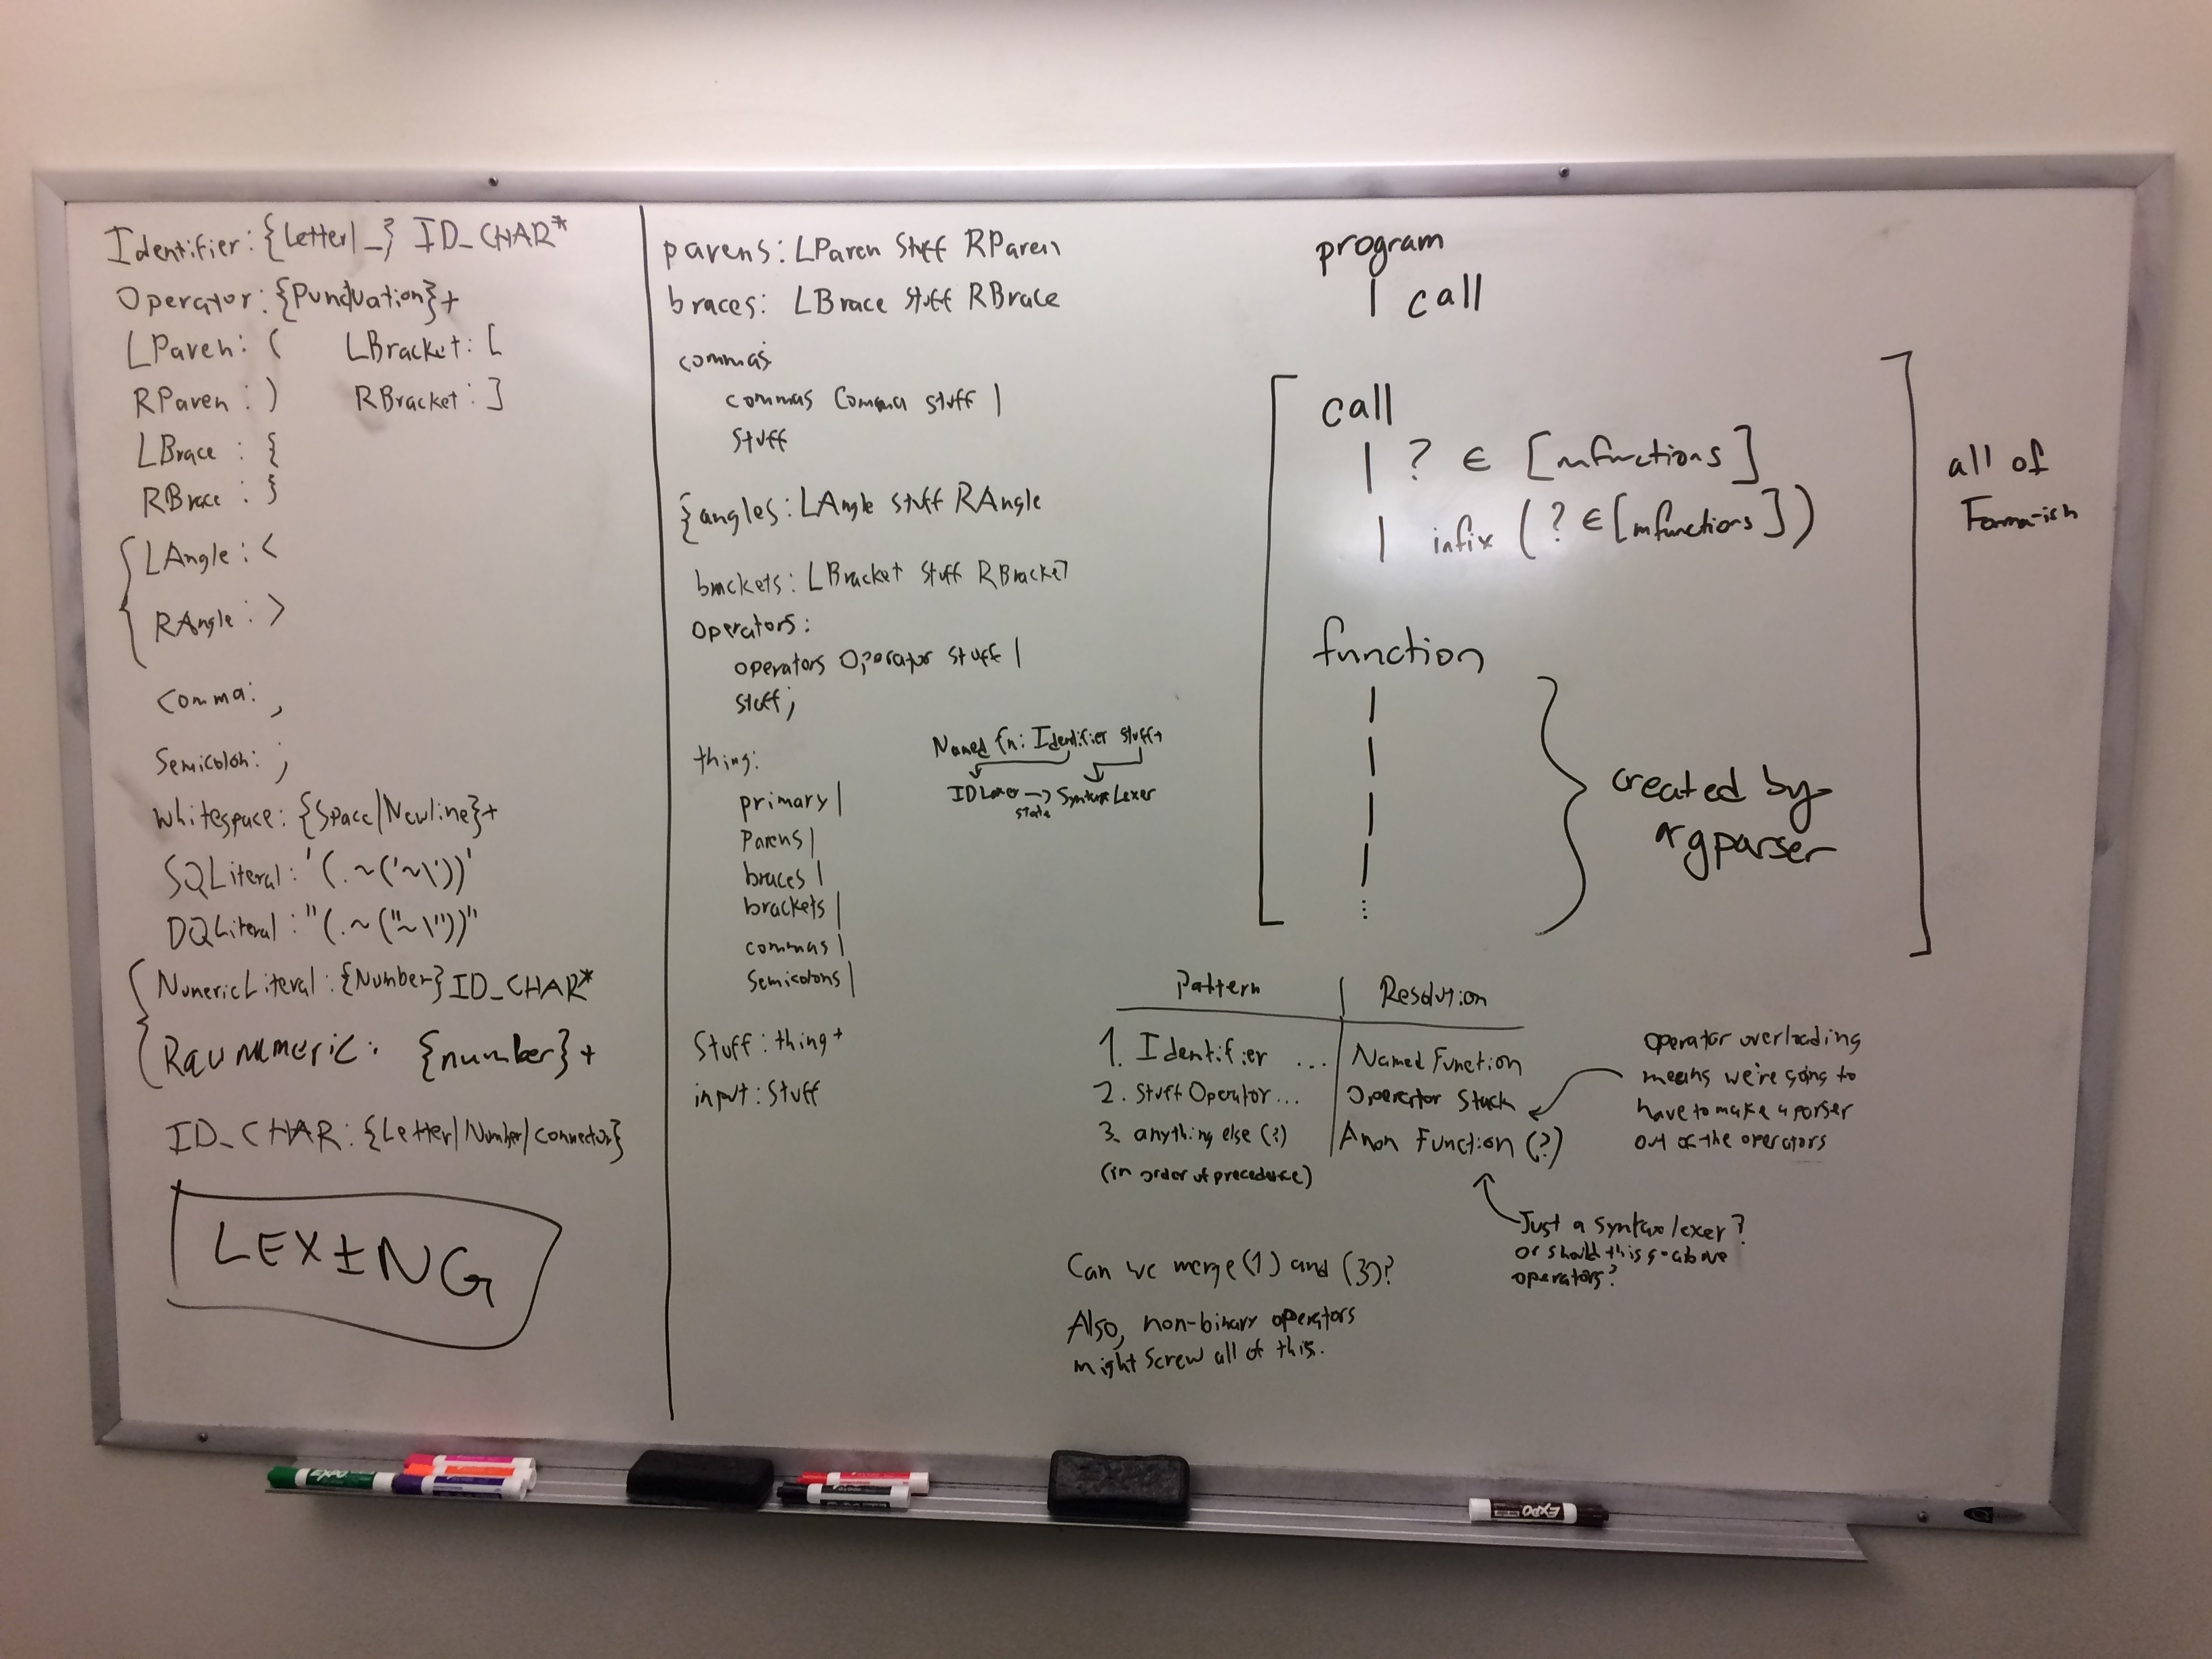 Identifier: {Letter|_} ID_CHAR*
Operator: {Punctuation}+
LParen: (    LBracket: [
RParen: )    RBracket: ]
LBrace: {
RBrace: }
{ LAngle: <
RAngle: >
Comma: ,
Semicolon: ;
Whitespace: {Space|Newline}+
SQLiteral: '(.~('~\'))'
DQLiteral: "(.~("~\"))"
{ NumericLiteral: {Number} ID_CHAR*
Raw numeric: {number}+
ID_CHAR: {Letter|Number|connector}
LEXING
parens: LParen Stuff RParen
braces: LBrace Stuff RBrace
commas
commas Comma stuff |
Stuff
{angles: LAngle stuff RAngle
brackets: LBracket Stuff RBracket
Operators:
operators Operator stuff |
stuff;
Named fn: Identifier stuff+
IDLexer → Syntax Lexer
state
thing:
primary |
Parens |
braces |
brackets |
commas |
Semicolons |
Stuff: thing+
input: Stuff
program
| call
call
| ? ∈ [mfunctions]
| infix (? ∈ [mfunctions])
function
|
|
|
|
...
created by
argparser
all of
Forma-ish
Pattern | Resolution
1. Identifier ... | Named Function
2. Stuff Operator... | Operator Stack
3. anything else (?) | Anon Function (?)
(in order of precedence)
Operator overloading
means we're going to
have to make a parser
out of the operators
Just a syntax lexer?
or should this go above
operators?
Can we merge (1) and (3)?
Also, non-binary operators
might screw all of this.
EXPO
EXPO